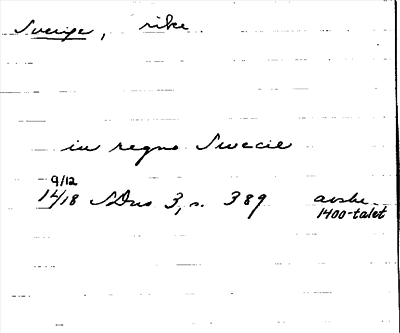 Sverige, rike
in regno Swecie
9/12
1418 SDns 3, s. 389 avskr.
1400-talet